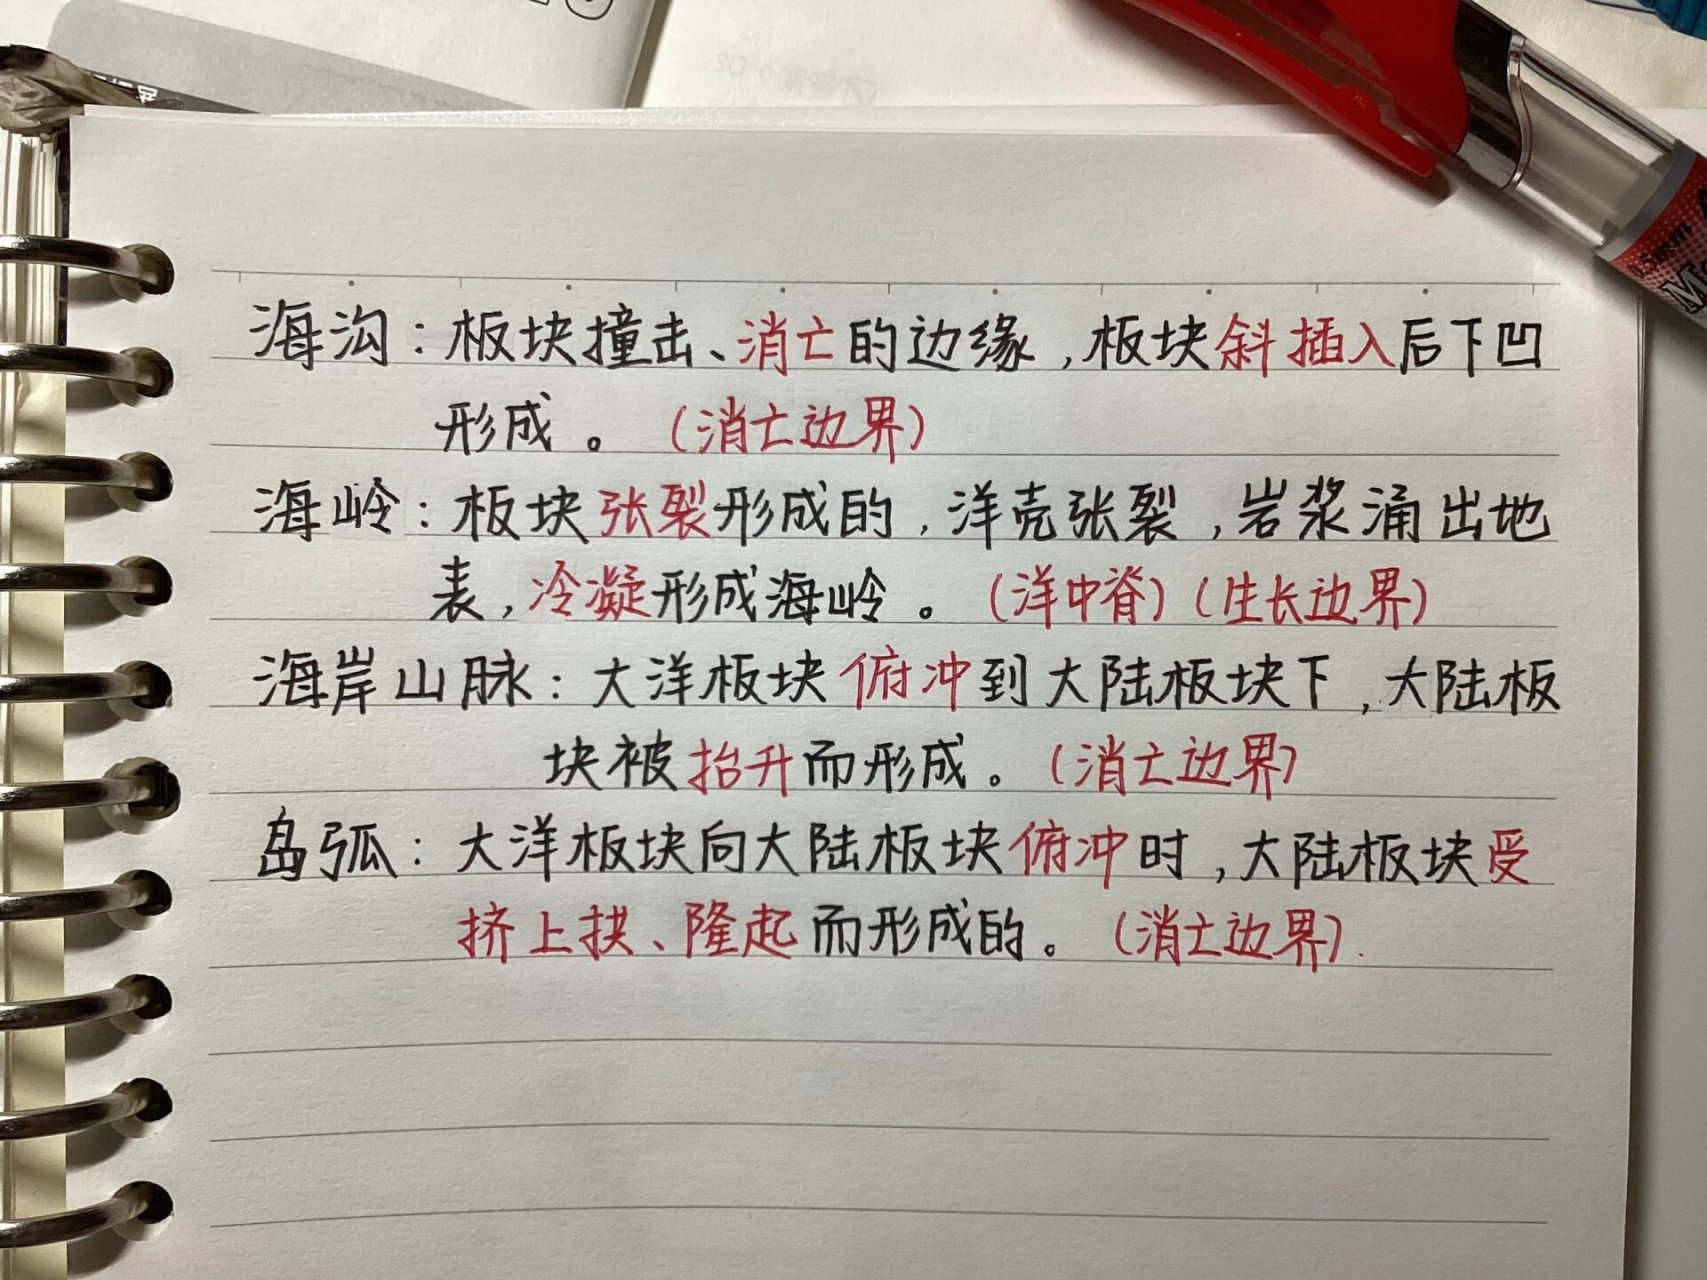 海沟：板块撞击、消亡的边缘，板块斜插入后下凹
形成。（消亡边界）
海岭：板块张裂形成的，洋壳张裂，岩浆涌出地
表，冷凝形成海岭。（洋中脊）（生长边界）
海岸山脉：大洋板块俯冲到大陆板块下，大陆板
块被抬升而形成。（消亡边界）
岛弧：大洋板块向大陆板块俯冲时，大陆板块受
挤上拱、隆起而形成的。（消亡边界）.